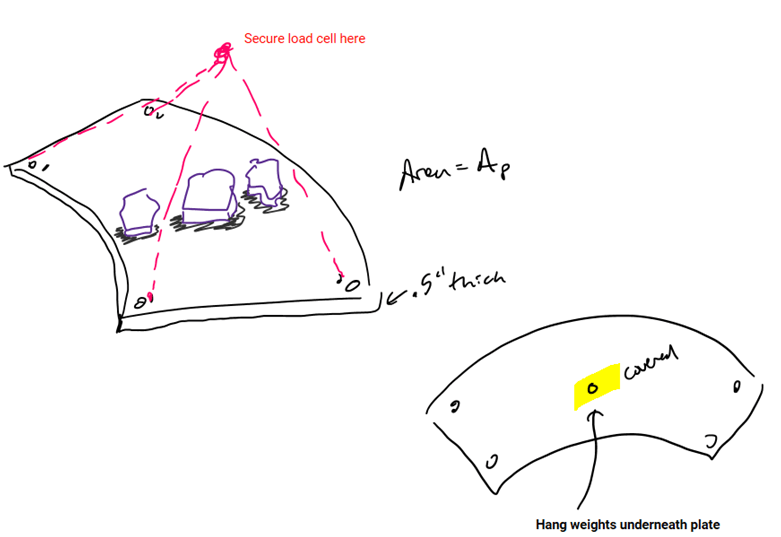 Secure load cell here
Area = Ap
.5" thick
covered
Hang weights underneath plate